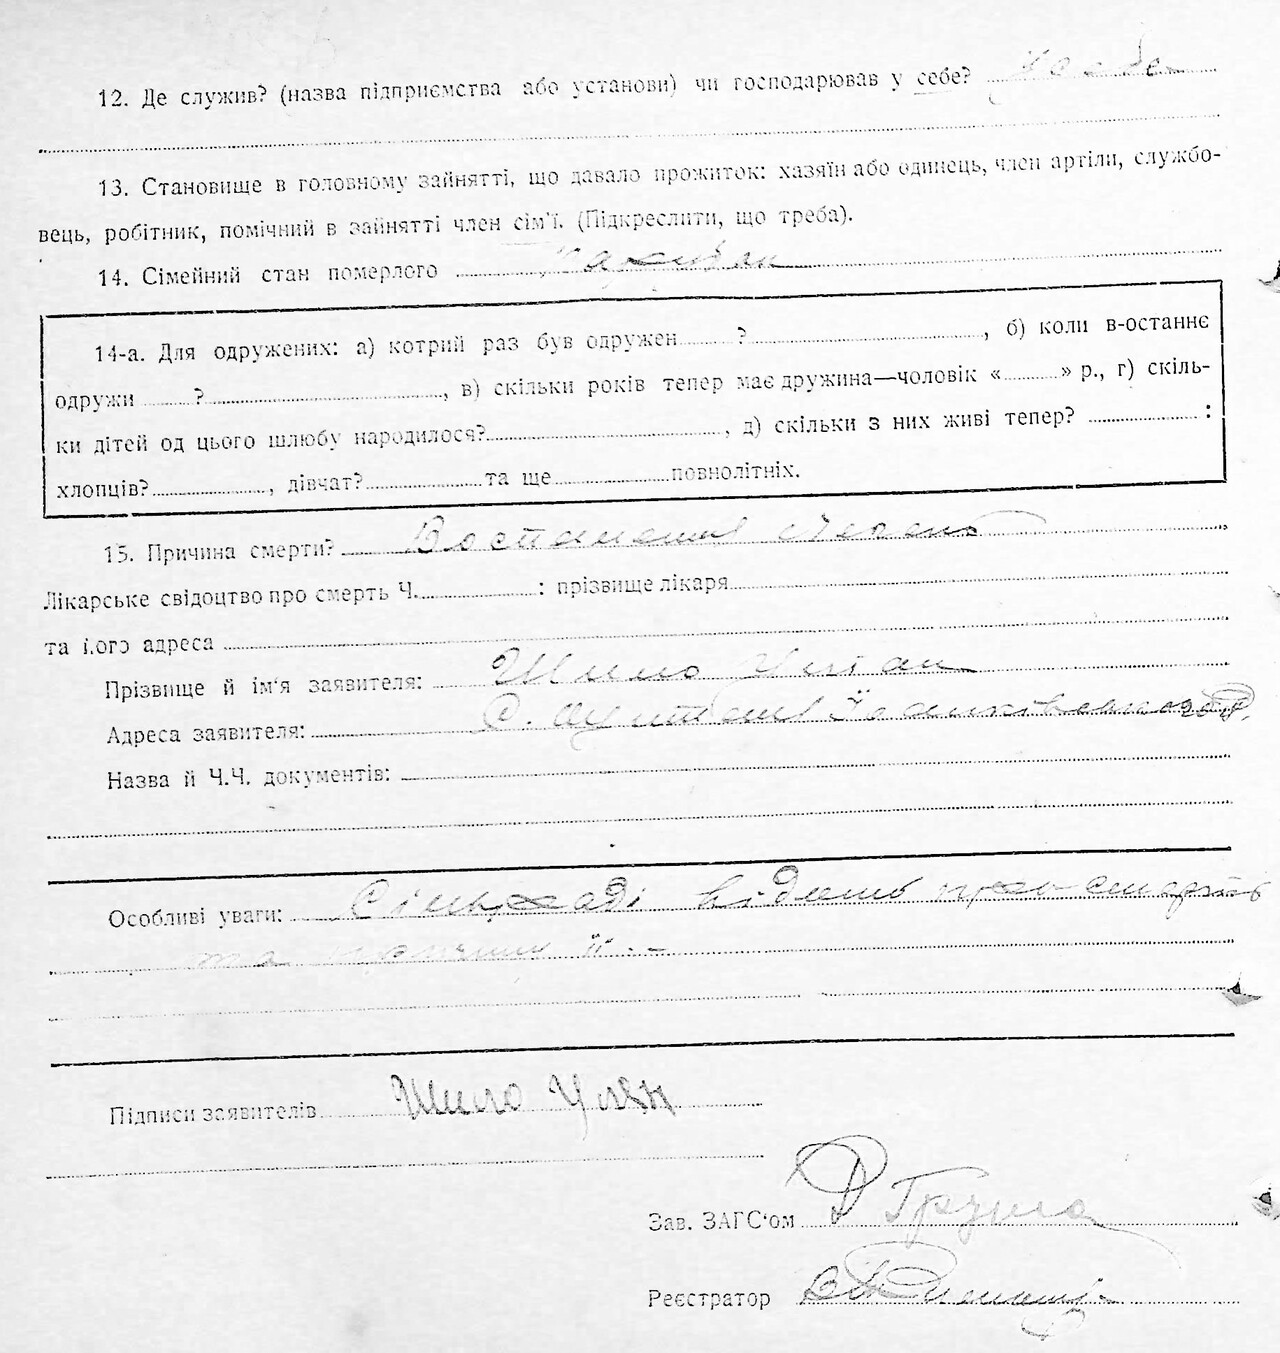 12. Де служив? (назва підприємства або установи) чи господарював у себе? у себе
13. Становище в головному зайнятті, що давало прожиток: хазяїн або одинець, член артіли, службо-
вець, робітник, помічний в зайнятті член сім'ї. (Підкреслити, що треба).
14. Сімейний стан померлого
14-а. Для одружених: а) котрий раз був одружен ? , б) коли в-останнє
одружи ? , в) скільки років тепер має дружина—чоловік « » р., г) скіль-
ки дітей од цього шлюбу народилося? , д) скільки з них живі тепер? :
хлопців? , дівчат? та ще повнолітніх.
15. Причина смерти? Воспаление
Лікарське свідоцтво про смерть Ч. : прізвище лікаря
та його адреса
Прізвище й ім'я заявителя: Шило Улян
Адреса заявителя: С.
Назва й Ч.Ч. документів:
Особливі уваги: відомо про смерть
та причини її. -
Підписи заявителів Шило Улян
Зав. ЗАГС'ом
Реєстратор